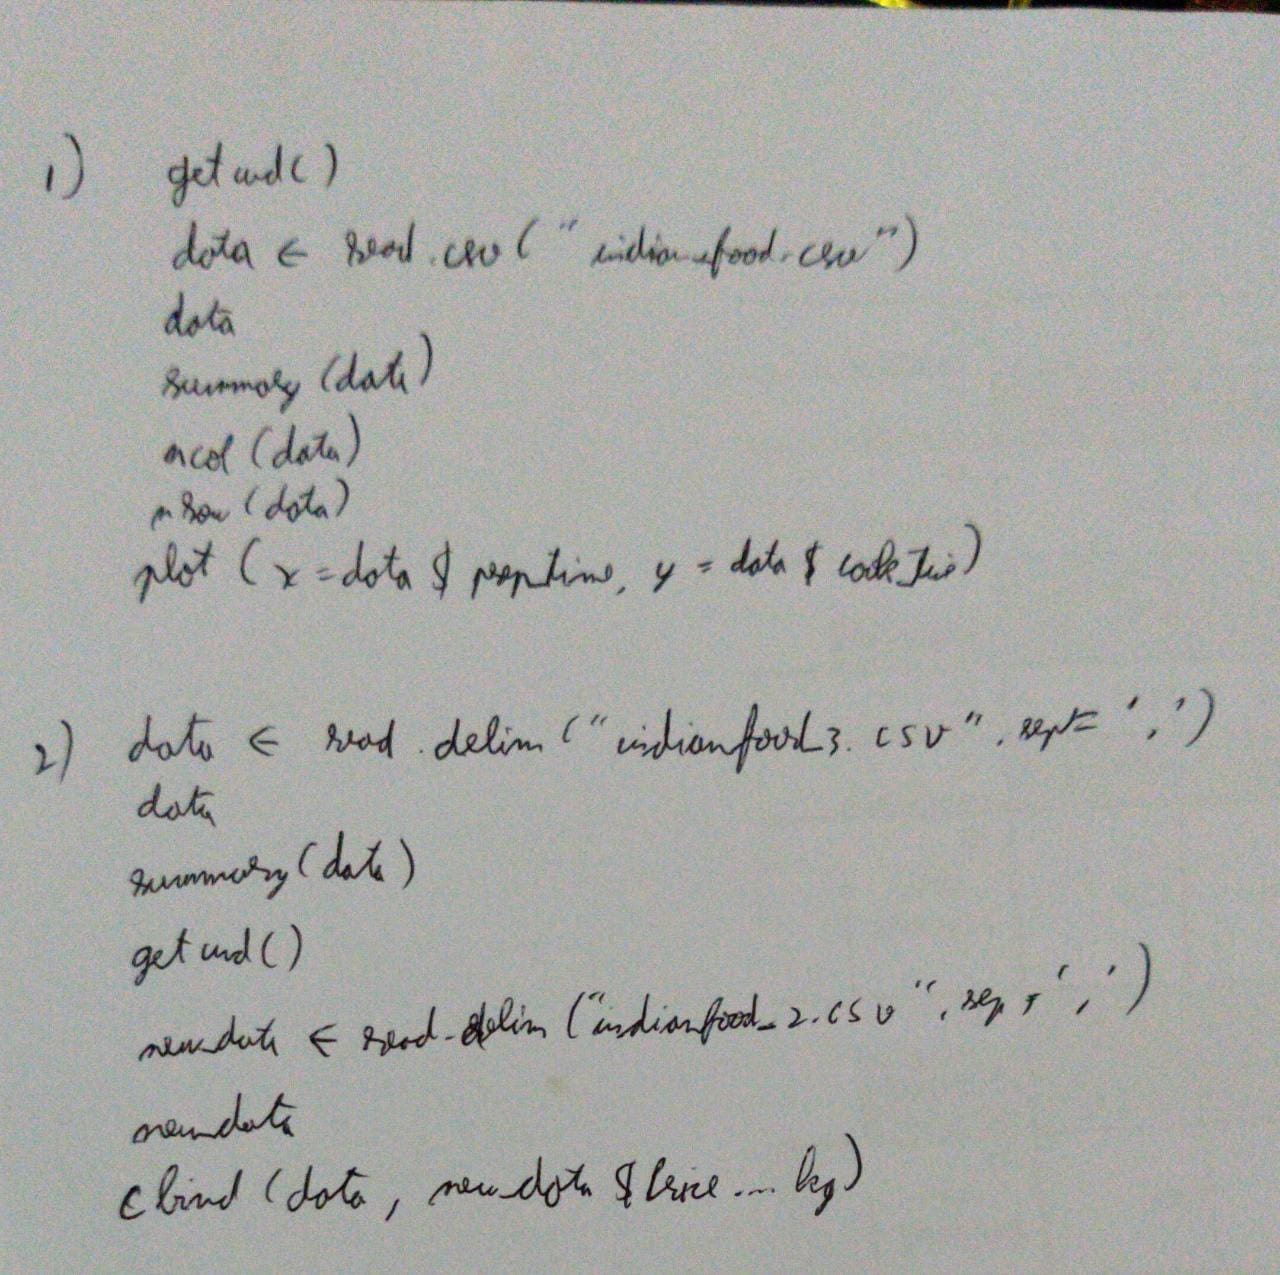 1) getwd()
data ← read.csv("indian_food.csv")
data
summary(data)
ncol(data)
nrow(data)
plot(x=data$prep_time, y=data$cook_time)
2) data ← read.delim("indianfood_3.csv", sep=',')
data
summary(data)
getwd()
new_data ← read.delim("indianfood_2.csv", sep=',')
new_data
cbind(data, new_data$Price...kg)